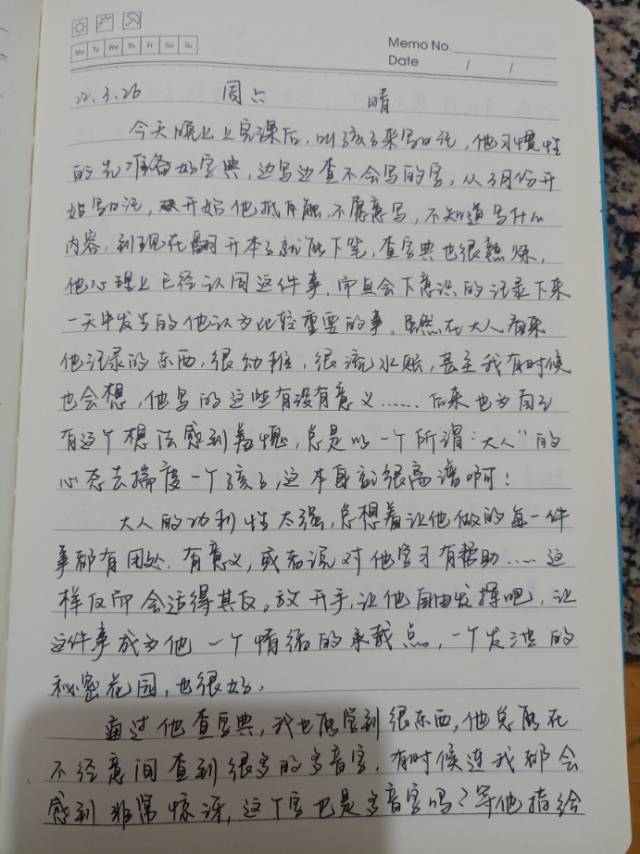 Memo No.
Mo Tu We Th Fr Sa Su
Date / /
22.3.26 周六 晴
今天晚上上完课后，叫孩子来写日记，他习惯性
的先准备好字典，边写边查不会写的字。从3月份开
始写日记，从开始他抵触，不愿意写，不知道写什么
内容，到现在翻开本子就能下笔，查字典也很熟练，
他心理上已经认同这件事，而且会下意识的记录下来
一天中发生的他认为比较重要的事。虽然在大人看来
他记录的东西，很幼稚，很流水账，甚至我有时候
也会想，他写的这些有没有意义……后来也为自己
有这个想法感到羞愧，总是以一个所谓“大人”的
心态去揣度一个孩子，这本身就很离谱啊！
大人的功利性太强，总想着让他做的每一件
事都有用处，有意义，或者说对他学习有帮助……这
样反而会适得其反。放开手，让他自由发挥吧，让
这件事成为他一个情绪的承载点，一个发泄的
秘密花园，也很好。
通过他查字典，我也能学到很东西，他总能在
不经意间查到很多的多音字，有时候连我都会
感到非常惊讶，这个字也是多音字吗？等他指给